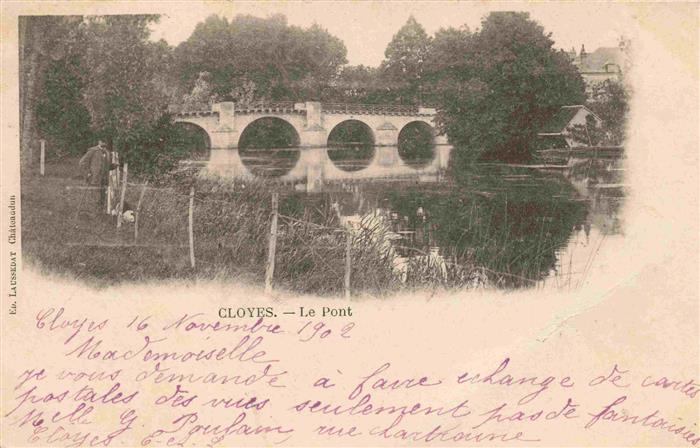 Ed. LAUSSEDAT Châteaudun
CLOYES. — Le Pont
Cloyes 16 Novembre 1902
Mademoiselle
je vous demande à faire echange de cartes
postales des vues seulement pas de fantaisie
Melle G. Poulain, rue
Cloyes E-et-L